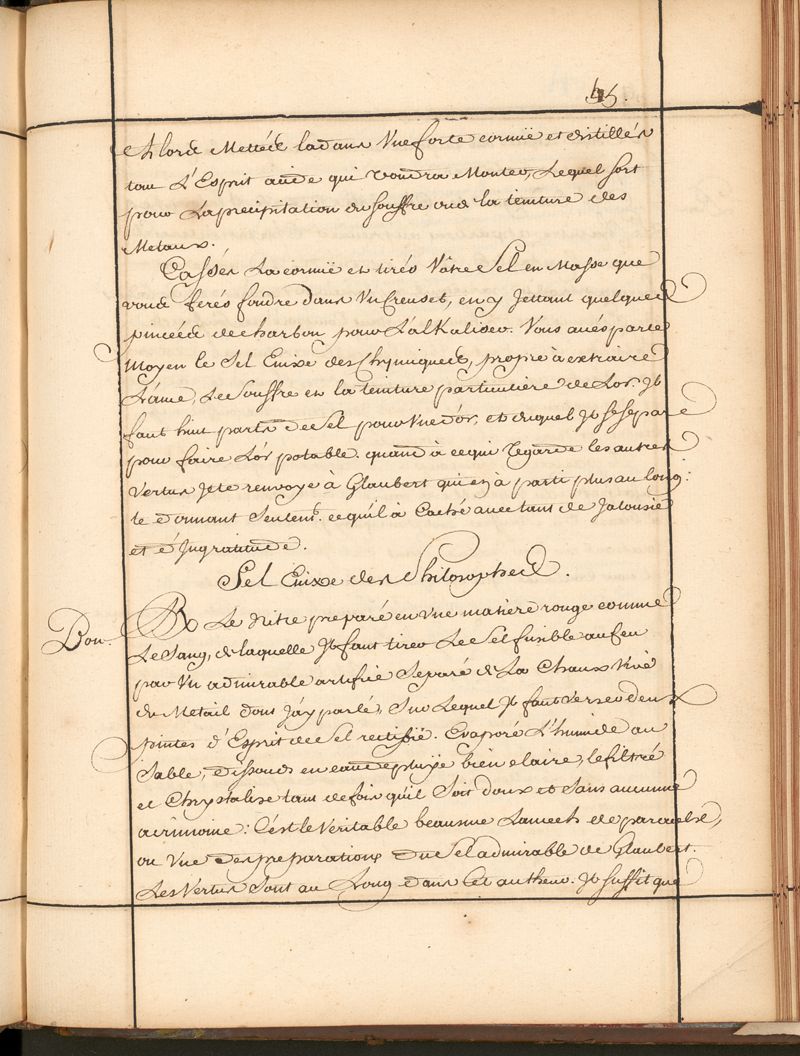 45.
Alors Mettéz la dans Une forte cornuë et distillés
tout L'Esprit acide qui voudra Monter, Lequel sert
pour La precipitation du souffre ou de la teinture des
Metaux.
Cassés La cornuë et tirés Vôtre Sel en Masse que
vous ferés fondre dans Un Creuset, en y Jettant quelques
pincéés de charbon pour L'alKaliser. Vous aués par ce
Moyen le Sel Enixe des Chymiques, propre à extraire
L'ame, Le Souffre et la teinture particuliere de L'or. Jl
faut huit parts de Sel pour Une d'or, et duquel Jl se separe
pour faire L'or potable. quand à ce qui Regarde les autres
Vertus Je te renvoye à Glaubert qui en à parlé plus au long:
te donnant Seulemt. ce qu'il à Caché auec tant de Jalousie
et d'Jngratitude.
Sel Enixe des Philosophes.
Bon.
Rx Le Nitre preparé en Une matiére rouge comme
Le Sang, de laquelle Jl faut tirer Le Sel fusible au feu
par Un admirable artifice Separé de La Chaux Vive
du Metail dont J'ay parlé, Sur Lequel Jl faut verser deux
pintes d'Esprit de Sel rectifié. Evaporé L'humide au
Sable, dissouds en eau de pluÿe bien claire, le filtré
et Chrystalise tant de fois qu'il Soit doux et Sans aucune
acrimoine: C'est le Veritable beaume Lameck de paracelse,
ou Une des preparations du Sel admirable de Glaubert.
Les Vertus Sont au Long dans Cet autheur. Jl suffit que